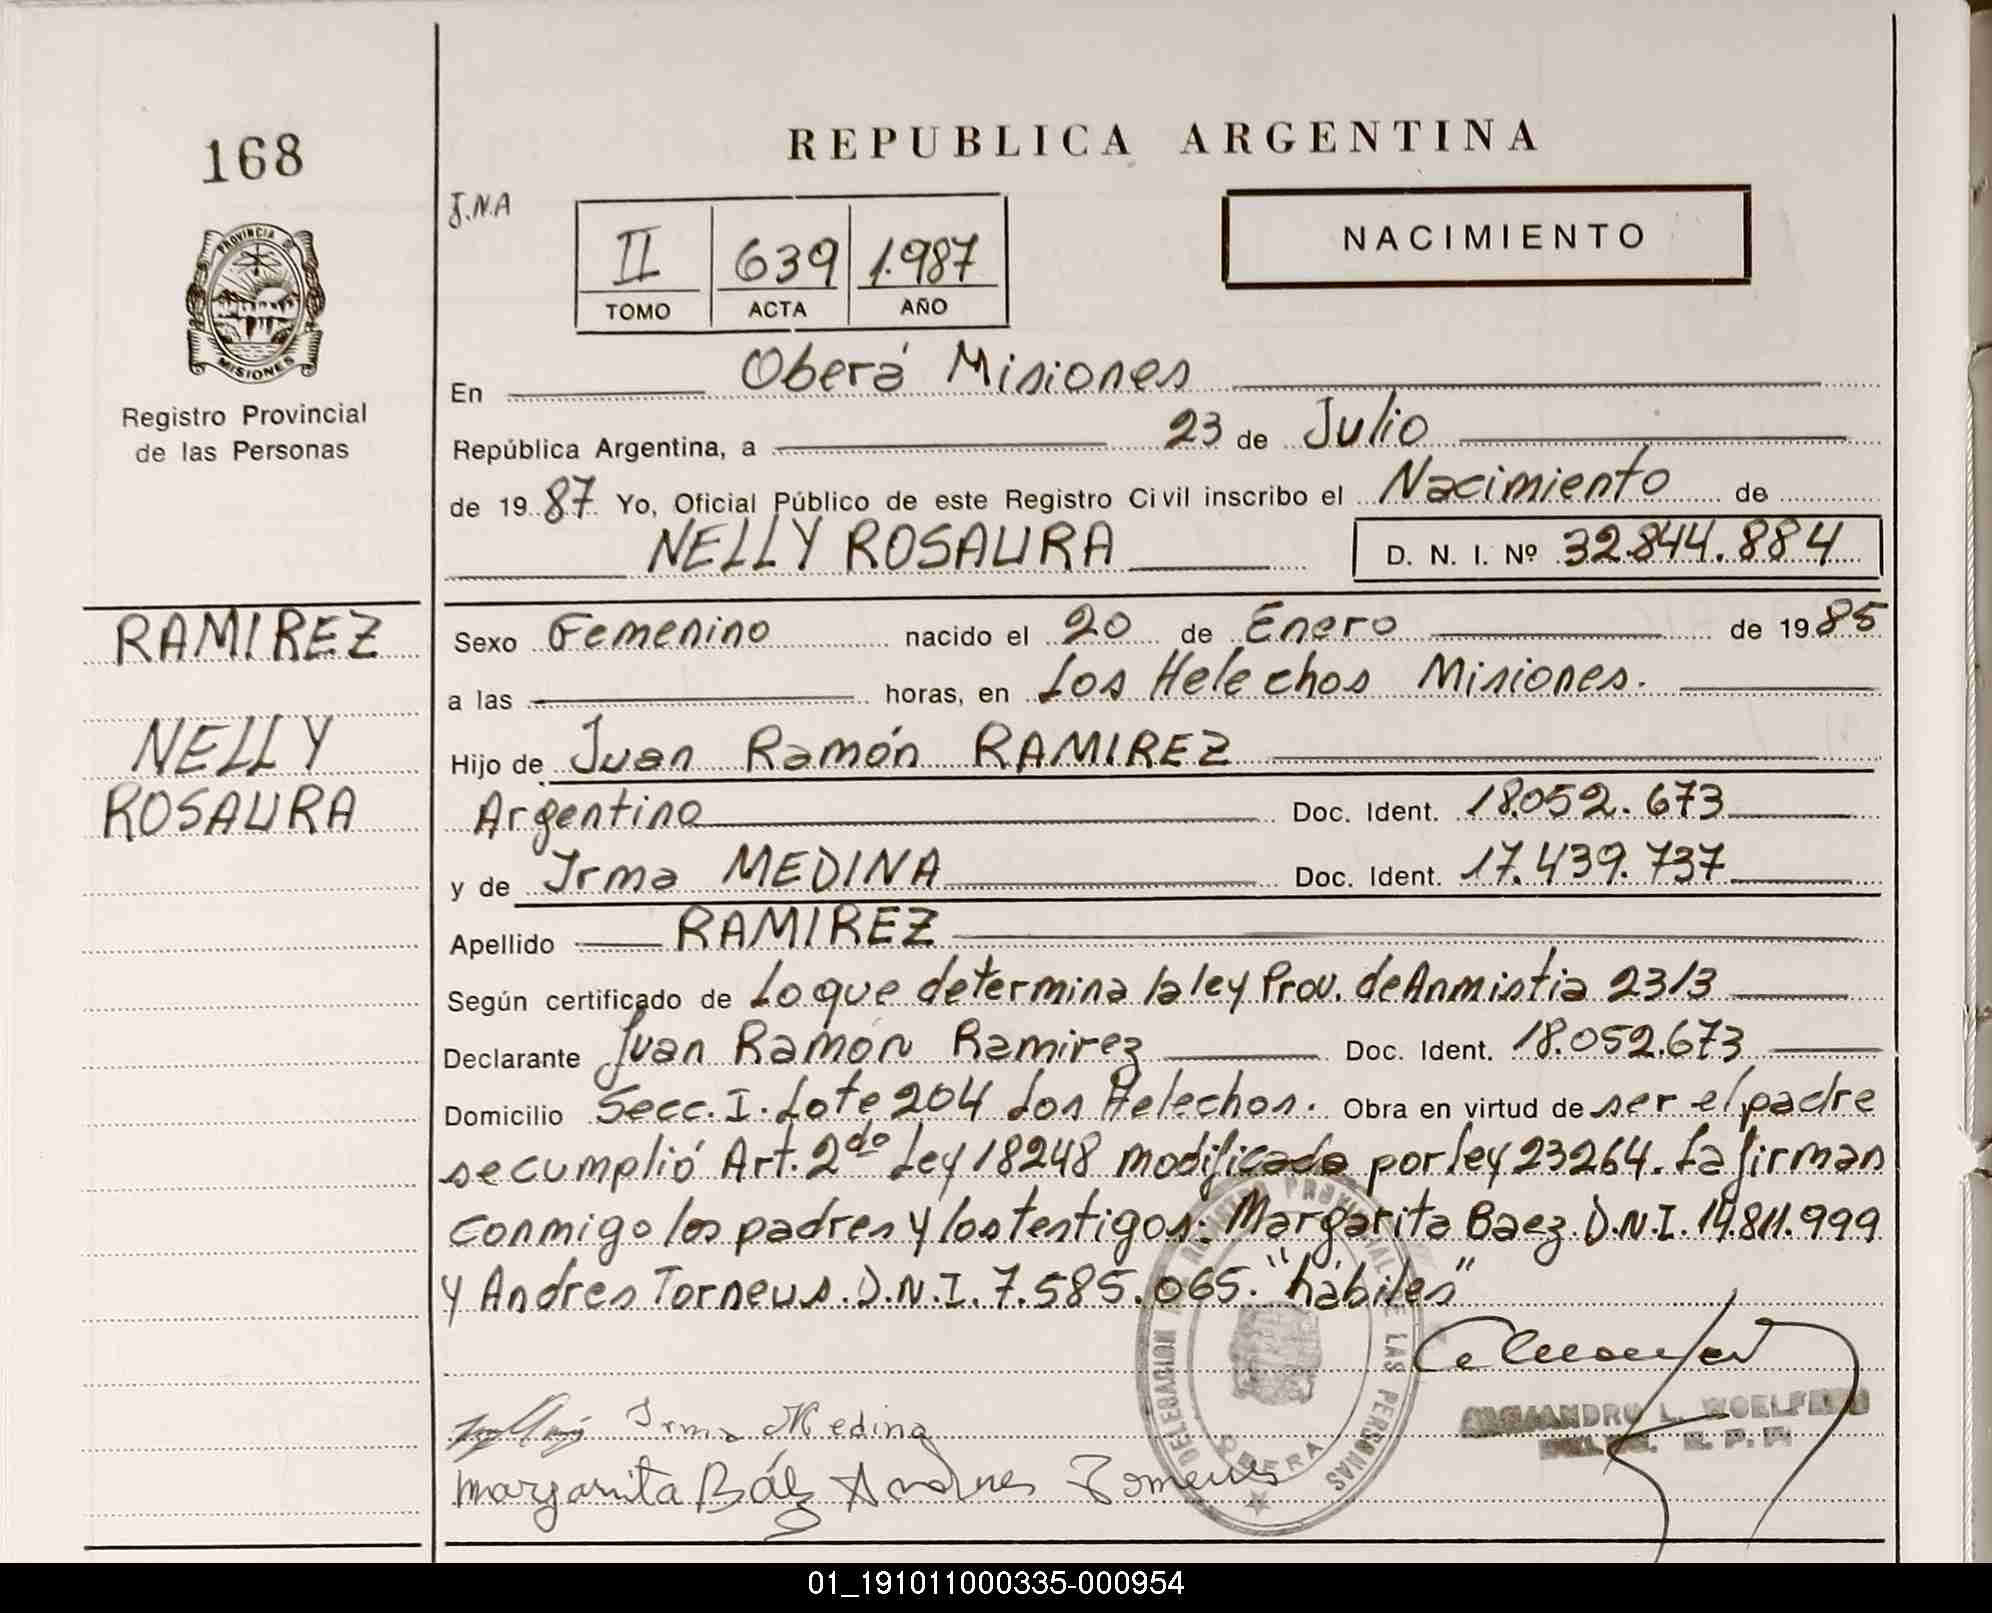 168
REPUBLICA ARGENTINA
J.N.A
II 639 1.987
TOMO ACTA AÑO
NACIMIENTO
PROVINCIA DE
MISIONES
Registro Provincial
de las Personas
En Oberá Misiones
República Argentina, a 23 de Julio
de 19 87 Yo, Oficial Público de este Registro Civil inscribo el Nacimiento de
NELLY ROSAURA D. N. I. Nº 32.844.884
RAMIREZ
NELLY
ROSAURA
Sexo Femenino nacido el 20 de Enero de 19 85
a las horas, en Los Helechos Misiones.
Hijo de Juan Ramón RAMIREZ
Argentino Doc. Ident. 18.052.673
y de Irma MEDINA Doc. Ident. 17.439.737
Apellido RAMIREZ
Según certificado de Lo que determina la ley Prov. de Anmistia 2313
Declarante Juan Ramón Ramirez Doc. Ident. 18.052.673
Domicilio Secc. I. Lote 204 Los Helechos. Obra en virtud de ser el padre
se cumplió Art. 2do Ley 18248 modificada por ley 23264. La firman
conmigo los padres y los testigos: Margarita Baez. D.N.I. 14.811.999
y Andres Torneus. D.N.I. 7.585.065. "hábiles"
DELEGACION REGISTRO PROVINCIAL DE LAS PERSONAS
OBERA
ALEJANDRO L.
Irma Medina
Margarita Báez Andres Torneus
01_191011000335-000954